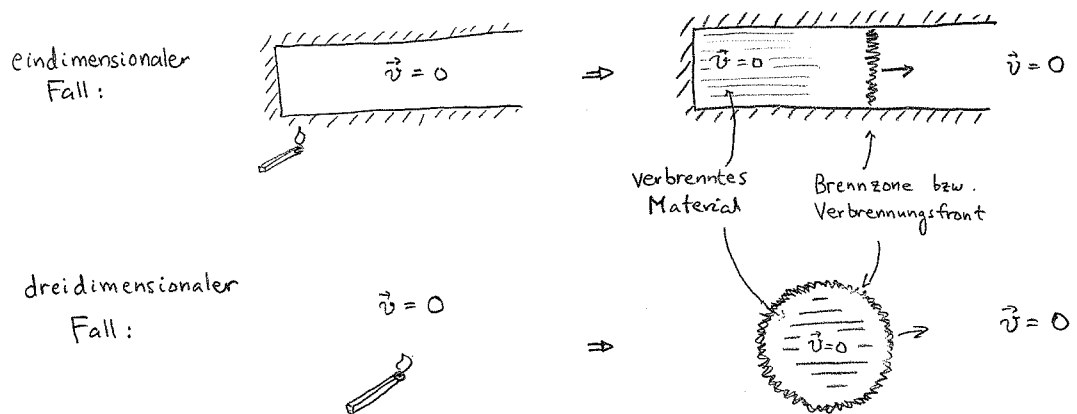 eindimensionaler
Fall:
v⃗ = 0
⇒
v⃗ = 0
v⃗ = 0
Verbrenntes
Material
Brennzone bzw.
Verbrennungsfront
dreidimensionaler
Fall:
v⃗ = 0
⇒
v⃗=0
v⃗ = 0